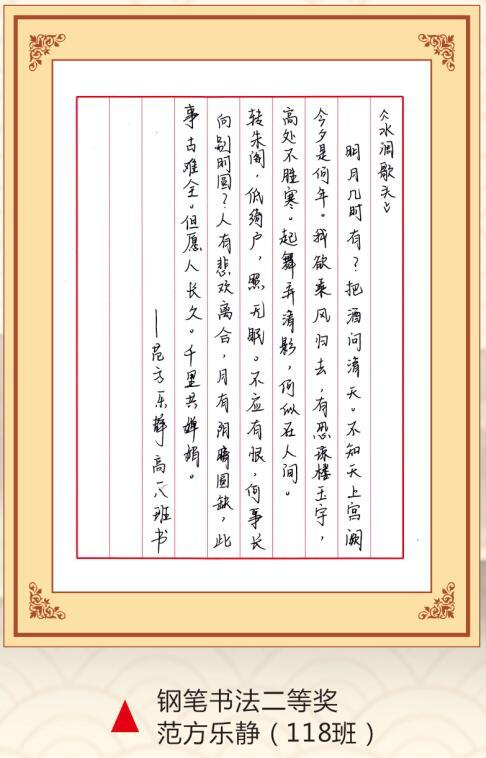 《水调歌头》
明月几时有？把酒问清天。不知天上宫阙
今夕是何年。我欲乘风归去，有恐琼楼玉宇，
高处不胜寒。起舞弄清影，何似在人间。
转朱阁，低绮户，照无眠。不应有恨，何事长
向别时圆？人有悲欢离合，月有阴晴圆缺，此
事古难全。但愿人长久。千里共婵娟。
—范方乐静 高一八班书
钢笔书法二等奖
范方乐静（118班）